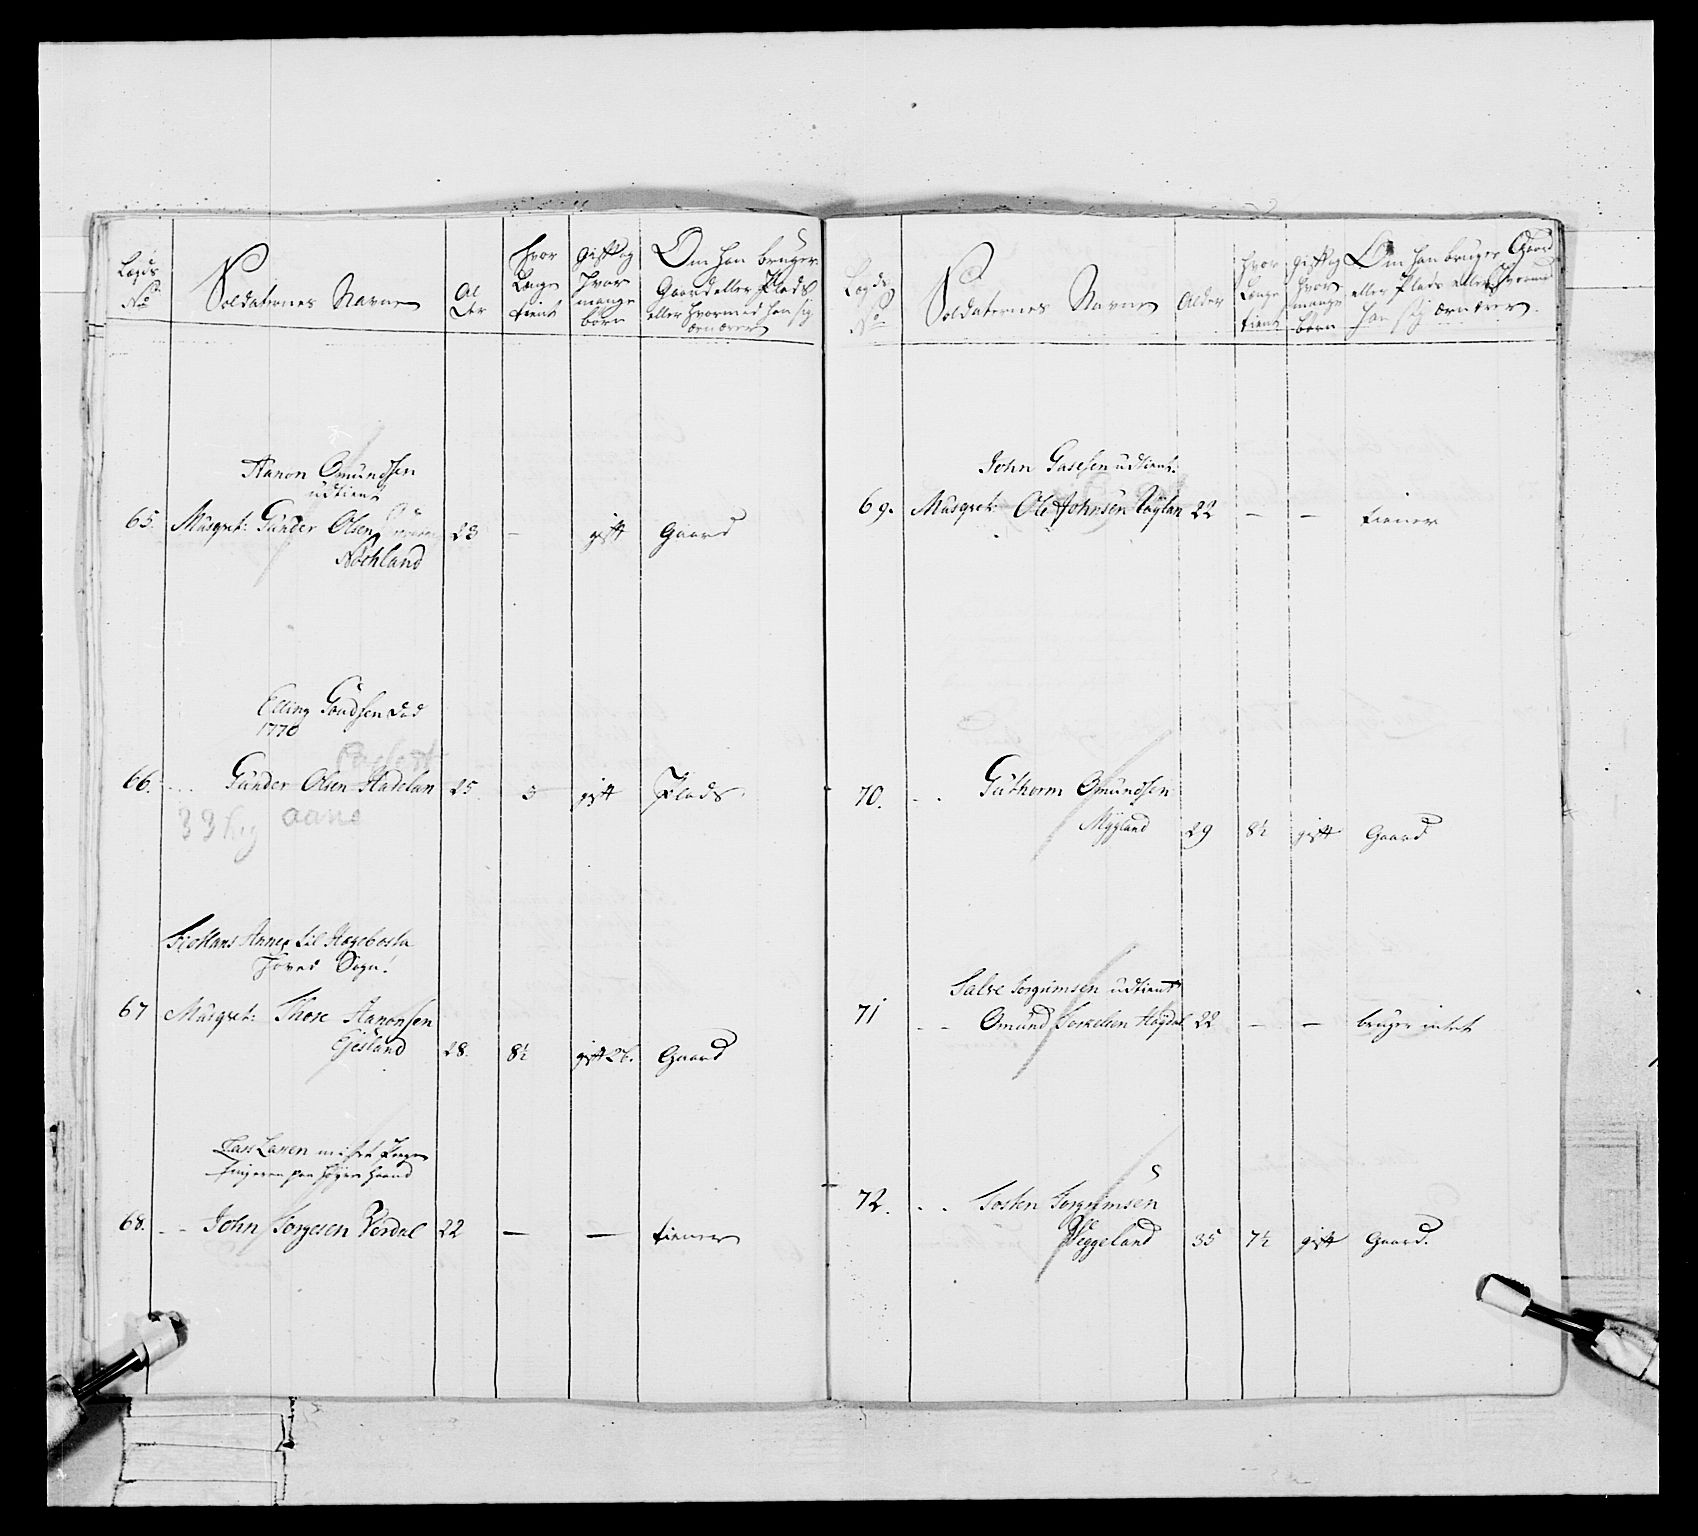 Lægds
No
Soldaternes Navne
Al
der
hvor
Længe
tient
gift og
hvor
mange
børn
Om han bruger
Gaard eller Plads
eller hvormed han sig
ærnærer
Hanon Omundsen
udtient
65. Musqvet: Gunder Olsen
Nøchland 23 – gift Gaard
Elling Gundsen død
1770
66. Gunder Olsen Hadelan 25 3 gift Plads.
33
aane
Annex til Hægebosta
Hoved Sogn!
67 Musqvet: Thore Hanonsen
Ejesland 28. 8½ gift 2b. Gaard
Lars Larsen mistet
fingeren paa høyre haand
68. John Torgesen Verdal 22 – – tiener
Lægds
No
Soldaternes Navne
Alder
hvor
Længe
tient
gift og
hvor
mange
børn
Om han bruger Gaard
eller Plads eller hvormed
han sig ærnærer.
John Gasesen udtient.
69. Musqvet: Ole Johnsen 22 – – tiener
70. Guthorm Omundsen
Mygland 29 8½ gift Gaard
Salve Torgrimsen udtient
71 Omund Terkelsen Høydal 22 – – bruger intet
72. Tosten Torgrimsen
Veggeland 35 7½ gift Gaard.